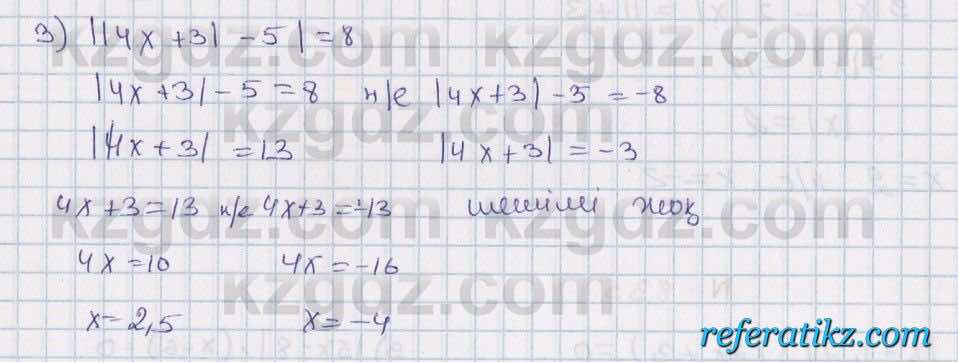 3) ||4x+3|-5|=8
|4x+3|-5=8 н/е |4x+3|-5=-8
|4x+3|=13 |4x+3|=-3
4x+3=13 н/е 4x+3=-13 шешімі жоқ
4x=10 4x=-16
x=2,5 x=-4
kzgdz.com
kzgdz.com
kzgdz.com
kzgdz.com
referatikz.com